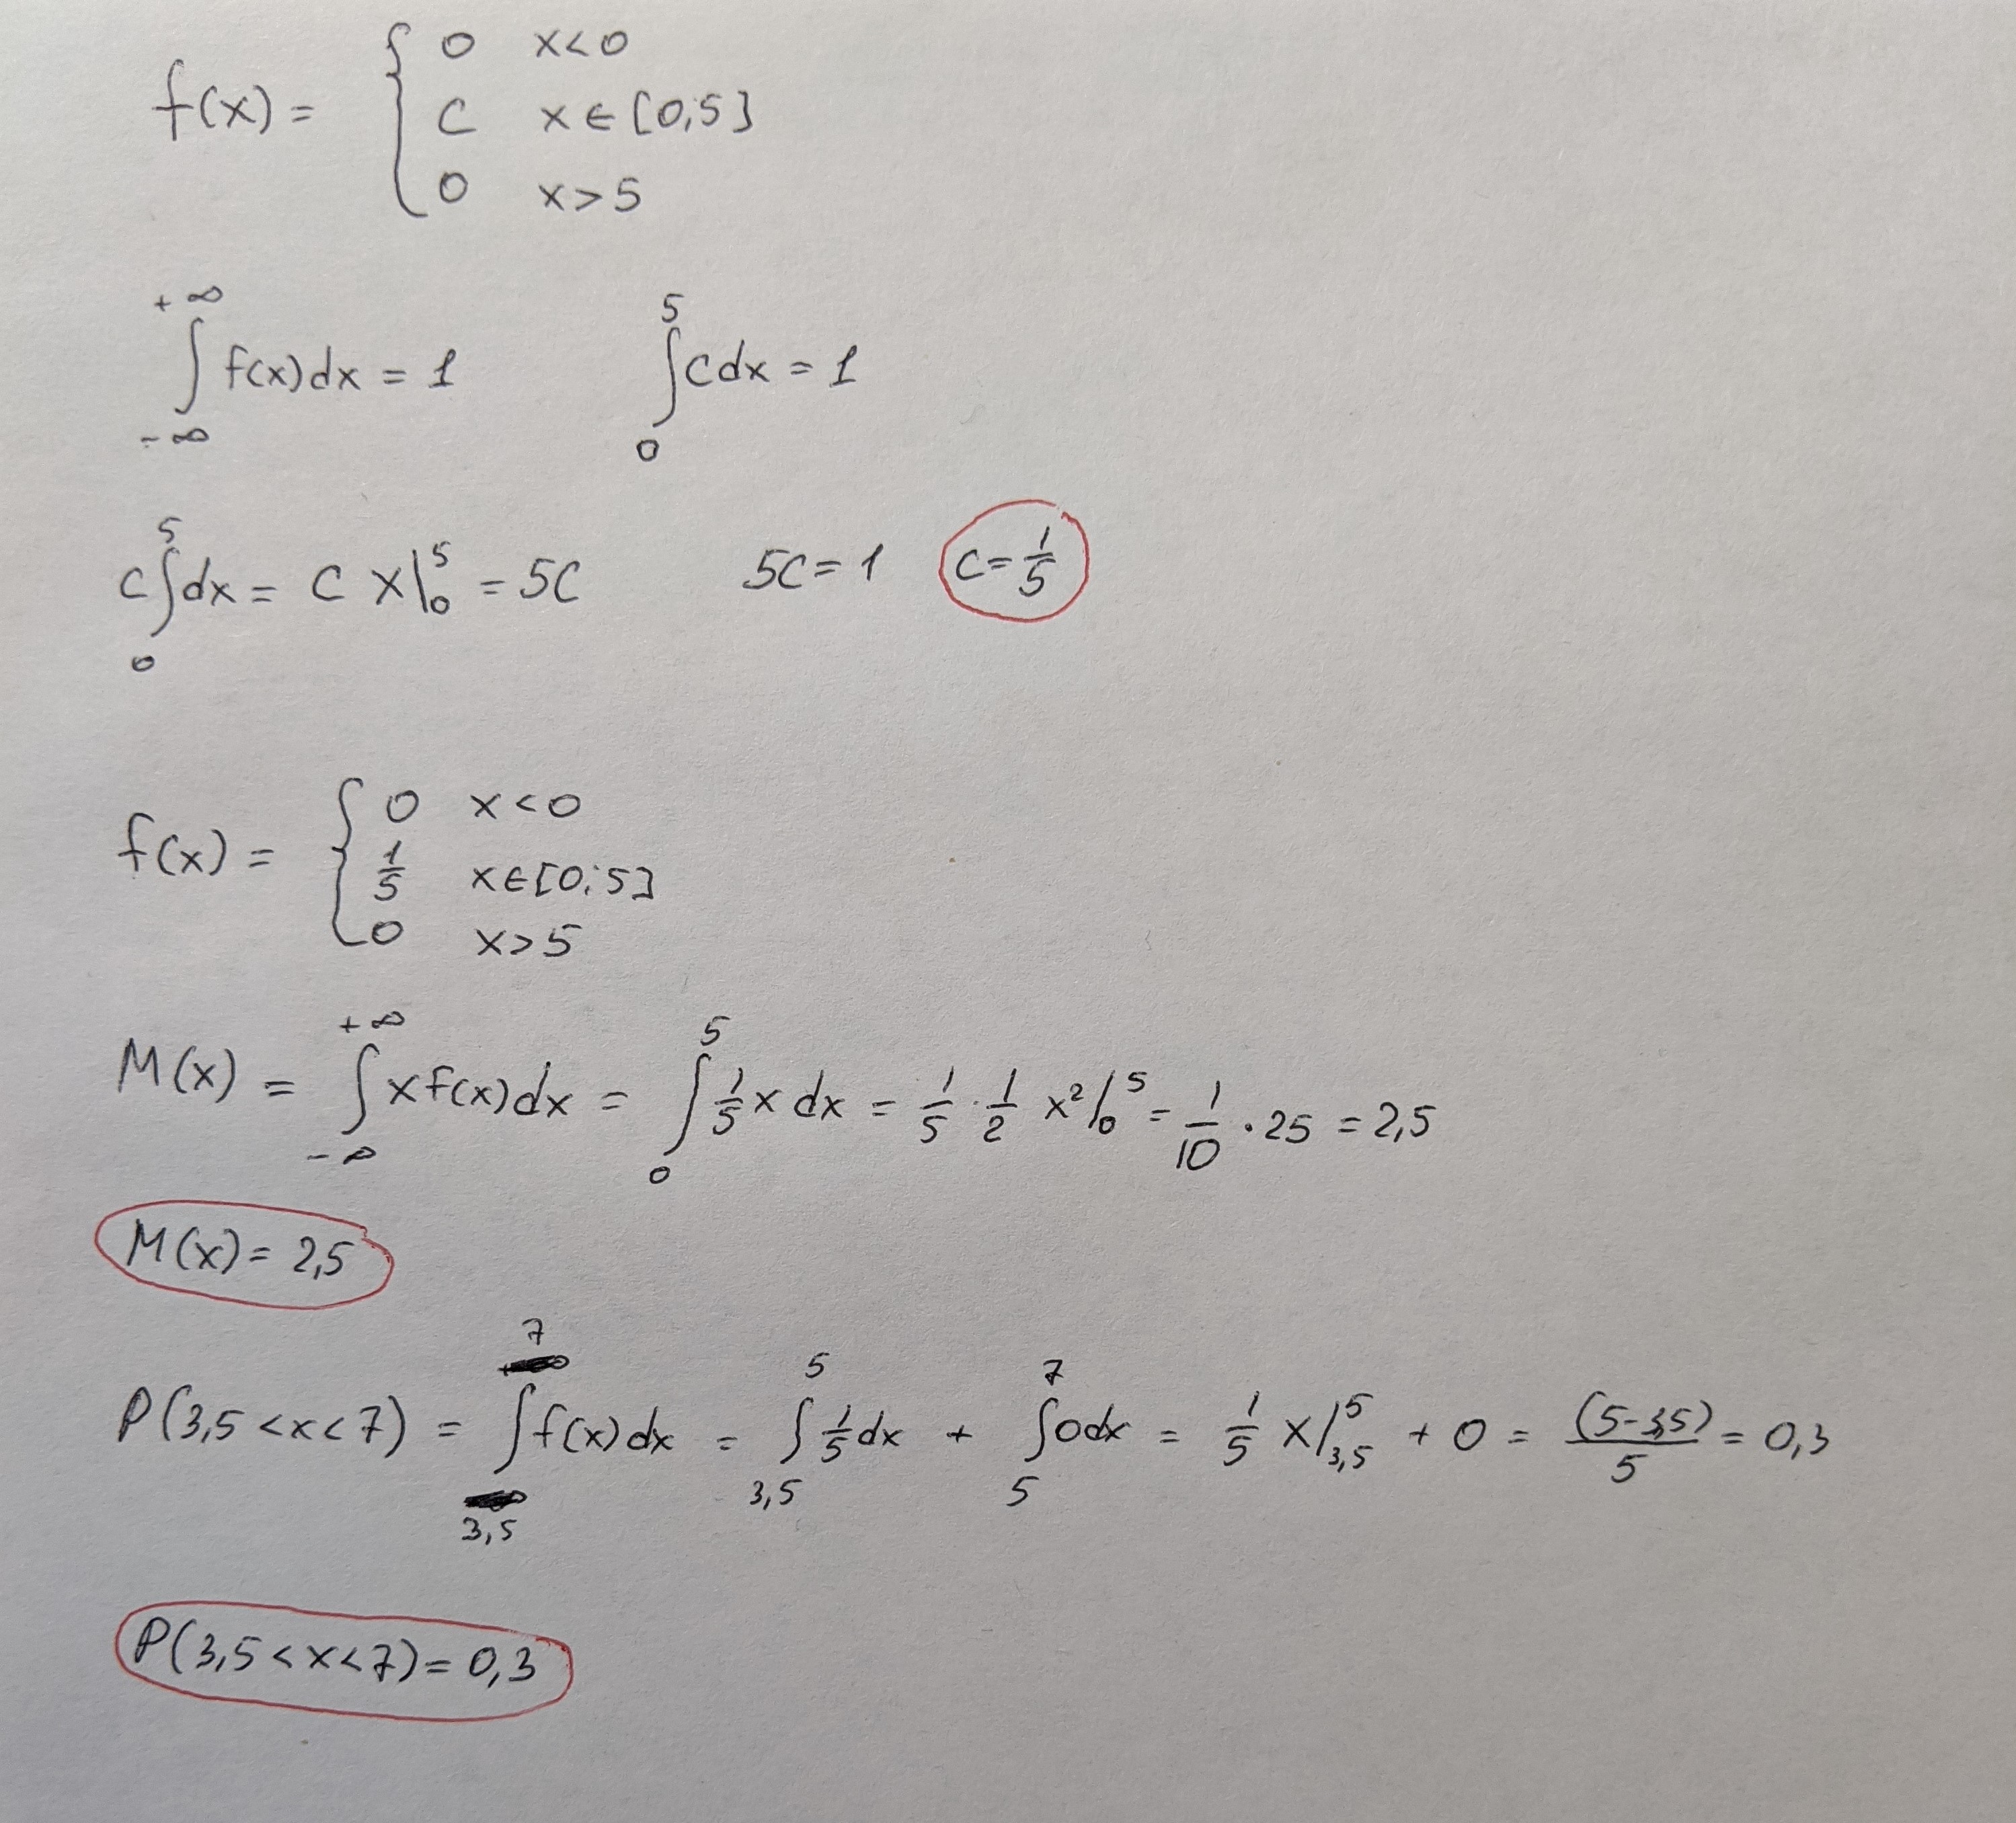 f(x) = { 0 x<0
C x∈[0;5]
0 x>5
+∞ ∫ -∞ f(x)dx = 1 5 ∫ 0 Cdx = 1
C 5 ∫ 0 dx = C x|⁵₀ = 5C 5C = 1 C = 1/5
f(x) = { 0 x<0
1/5 x∈[0;5]
0 x>5
M(x) = +∞ ∫ -∞ x f(x)dx = 5 ∫ 0 1/5 x dx = 1/5 · 1/2 x²|⁵₀ = 1/10 · 25 = 2,5
M(x) = 2,5
P(3,5 < x < 7) = 7 ∫ 3,5 f(x)dx = 5 ∫ 3,5 1/5 dx + 7 ∫ 5 0dx = 1/5 x|⁵₃,₅ + 0 = (5-3,5)/5 = 0,3
P(3,5 < x < 7) = 0,3